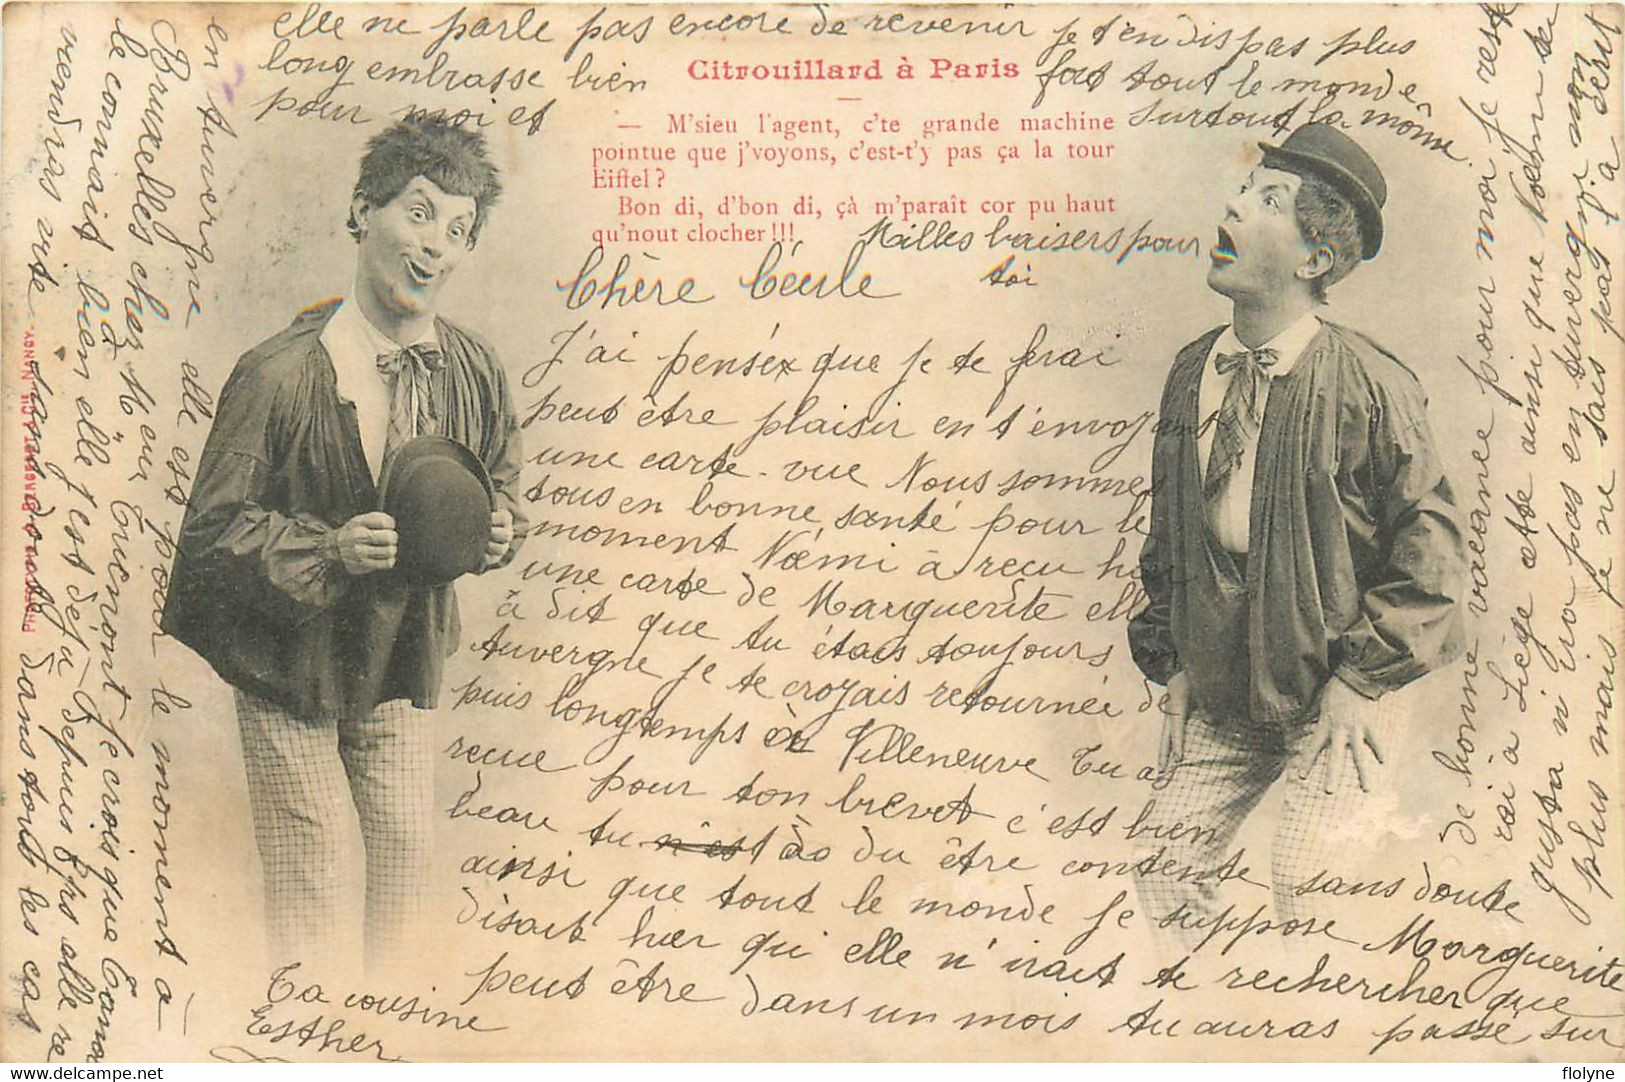 Citrouillard à Paris
— M'sieu l'agent, c'te grande machine
pointue que j'voyons, c'est-t'y pas ça la tour
Eiffel ?
Bon di, d'bon di, çà m'paraît cor pu haut
qu'nout clocher !!!
Chère Cécile
J'ai penséx que je te ferai
peut être plaisir en t'envoyant
une carte-vue Nous sommes
tous en bonne santé pour le
moment Nœmi à recu hier
une carte de Marguerite elle
à dit que tu étais toujours en
Auvergne je te croyais retournée de
puis longtemps à Villeneuve Tu as
recue pour ton brevet c'est bien
beau tu n'est as du être contente sans doute
ainsi que tout le monde je suppose Marguerite
disait hier qui elle n'irait te rechercher que
peut être dans un mois tu auras passé sur
de bonne vacance pour moi je reste
rai à Liège cette ainsi que Nœmi
gusta n'ira pas en Auvergne mon
plus mais je ne sais pas l'a serut
en Auvergne elle est pour le moment à
Bruxelles chez Mr eur Tricnont je crois que
le connait bien elle j'est déjà depuis
viendras vite sans doute dans tout les cas
elle ne parle pas encore de revenir je t'en dis pas plus
long embrasse bien fort tout le monde
pour moi et surtout la môme
Milles baisers pour
toi
Ta cousine
Esther
PHOTOTYPIE A. BERGERET & CIE, NANCY.
delcampe.net
flolyne